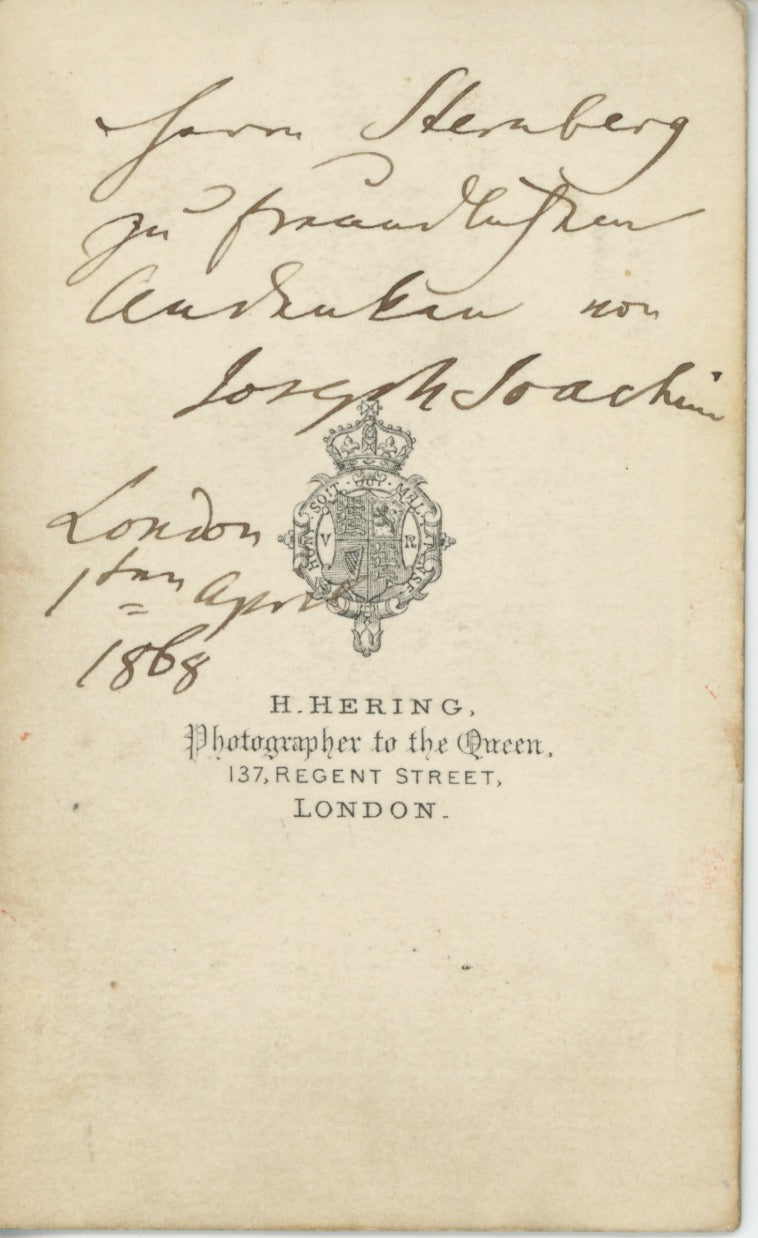 Herrn Sternberg
zu freundlichen
Andenken von
Joseph Joachim
HONI · SOIT · QUI · MAL · Y · PENSE
V R
London
1ten April
1868
H. HERING,
Photographer to the Queen,
137, REGENT STREET,
LONDON.